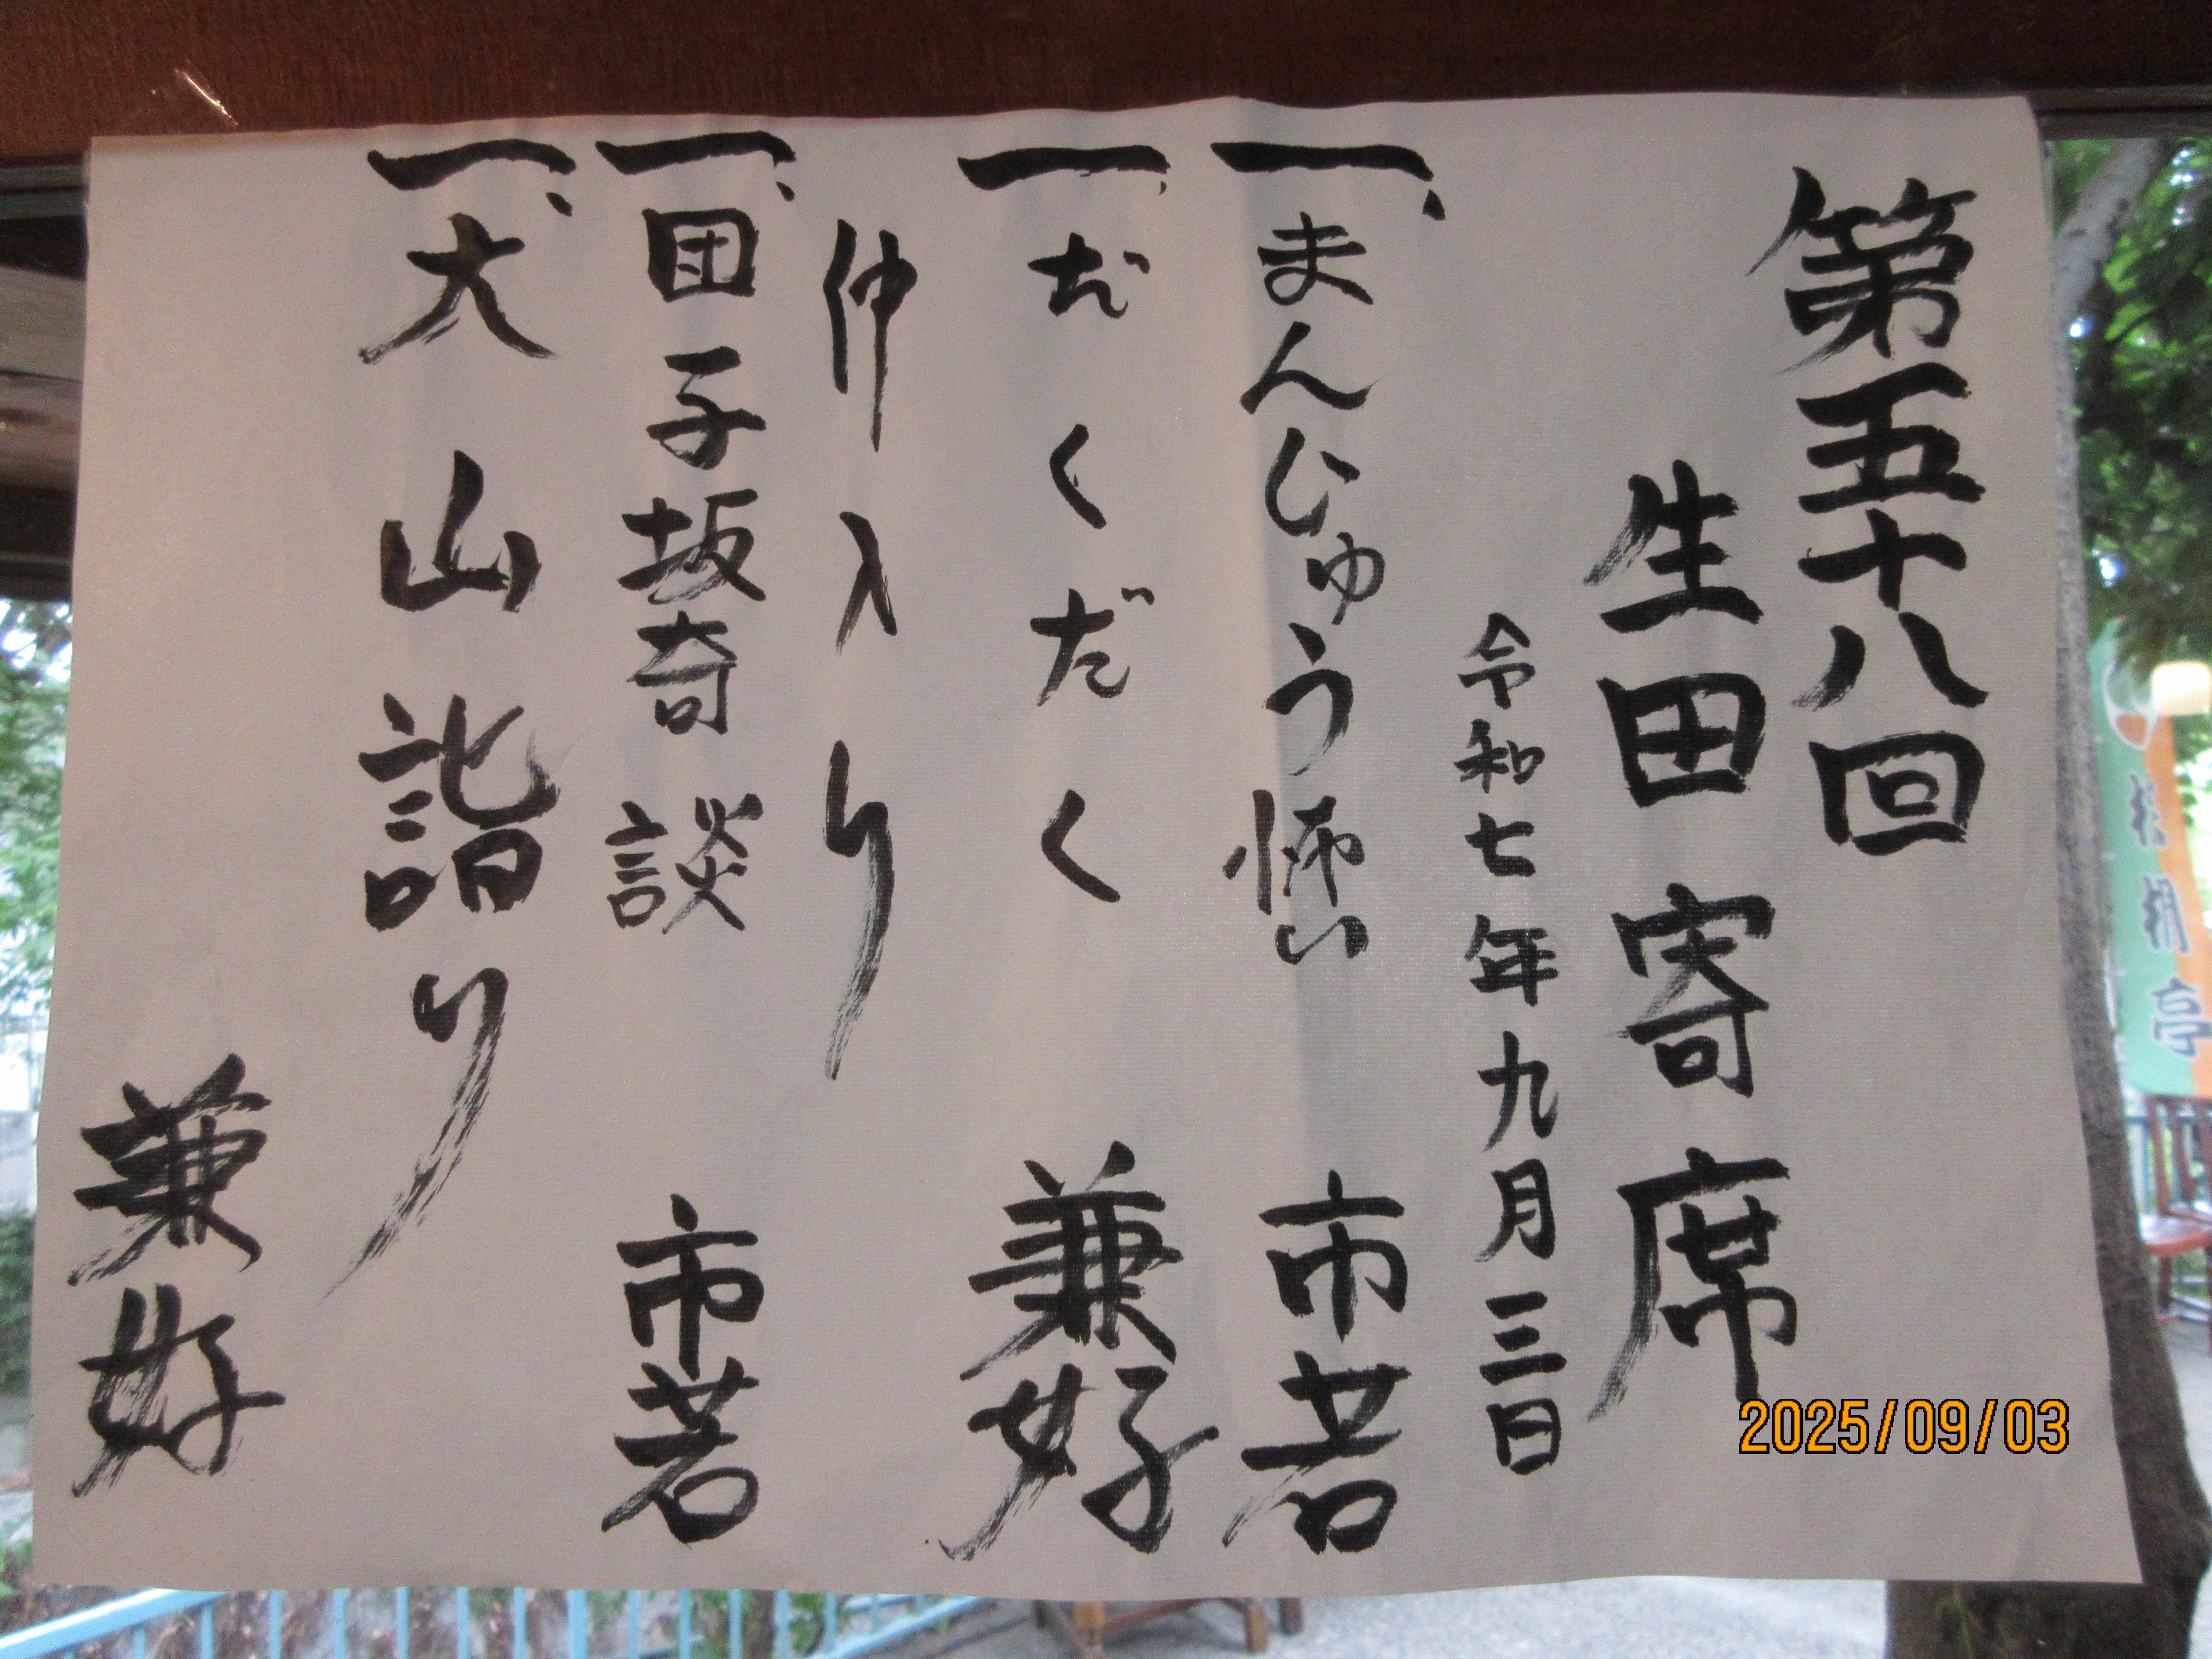 第五十八回
生田寄席
令和七年九月三日
一、まんじゅう怖い 市若
一、だくだく 兼好
仲入り
一、団子坂奇談 市若
一、大山詣り
兼好
2025/09/03
亭